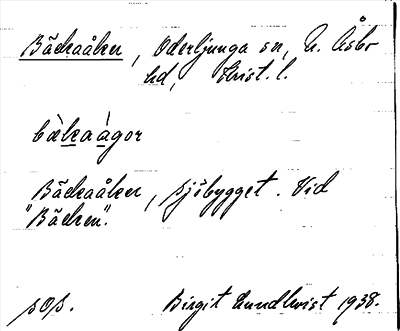 Bäckaåker, Oderljunga sn, N. Åsbo
hd, Krist. l.
bàkaàgor
Bäckaåker, sjöbygget. Vid
"Bäcken".
sOs. Birgit Lundkvist 1938.